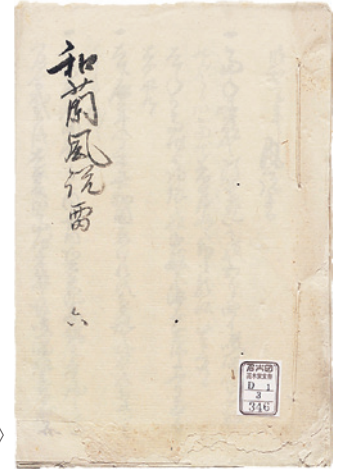 和蘭風説書
六
D 1
3
346